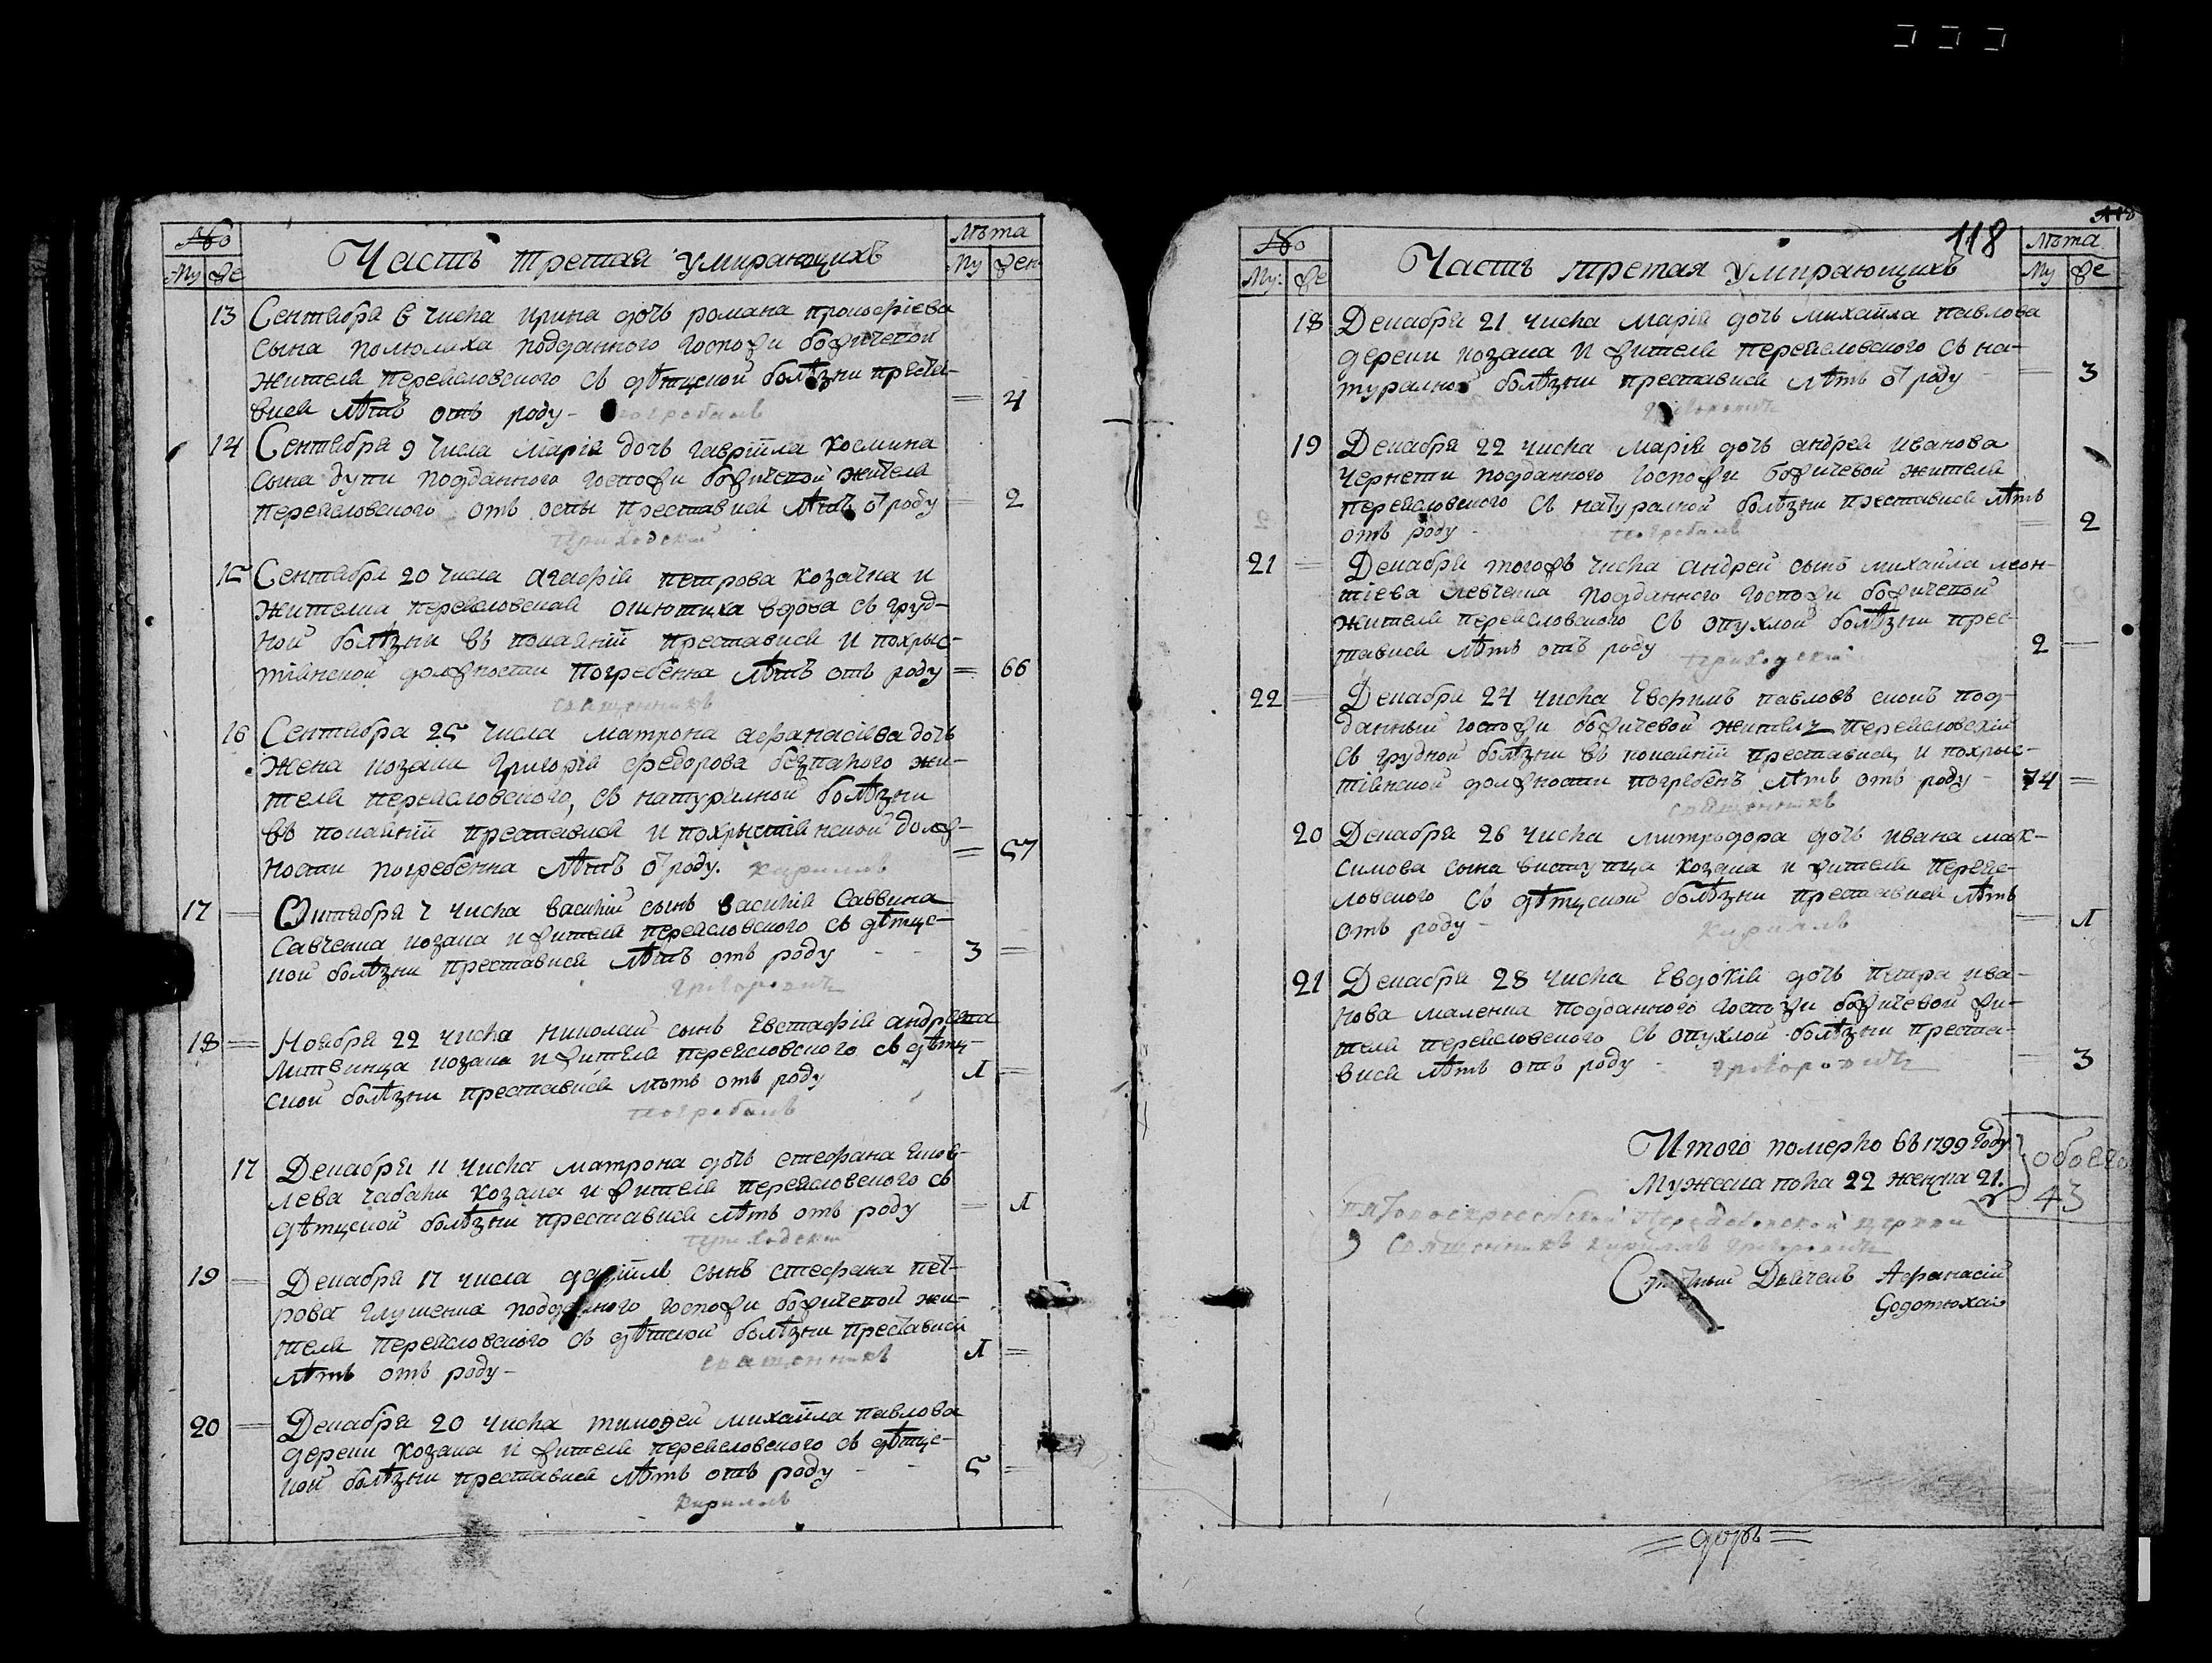 №
Лѣта
Му Же
Часть третая умирающихъ
Му Жен
13 Сентября 6 числа Ирина дочь романа прокофіева
сына подданного госпожи божичевой
жителя переясловского съ дѣтцкой болѣзни преста-
вися лѣтъ отъ роду - = 4
погребалъ
14 Сентября 9 числа Марія дочь гавріила космина
сына подданного госпожи божичевой жителя
переясловского отъ оспы преставися лѣтъ о роду = 2
приходскій
15 Сентября 20 числа агафія петрова козачка и
жителка переясловская вдова съ груд-
ной болѣзни въ покаяніи преставися и похрыс-
тіянской должности погребенна лѣтъ отъ роду = 66
священникъ
16 Сентября 25 числа матрона афанасіева дочь
жена козака григорія федорова безпалого жи-
теля переясловского, съ натуралной болѣзни
въ покаяніи преставися и похрыстіянской долж-
ности погребенна лѣтъ о роду. = 57
кириллъ
17 = Октября 7 числа василій сынъ василія Саввина
савченка козака и жителя переясловского съ дѣтцс-
кой болѣзни преставися лѣтъ отъ роду - - 3 =
григоровичъ
18 = Ноября 22 числа николай сынъ Евстафія
литвинца козака и жителя переясловского съ дѣтц-
ской болѣзни преставися лѣтъ отъ роду 1 =
погребалъ
17 Декабря 11 числа матрона дочь стефана яков-
лева чабака козака и жителя переясловского съ
дѣтцской болѣзни преставися лѣтъ отъ роду = 1
приходскій
19 = Декабря 17 числа даніилъ сынъ стефана пет-
рова глушенка подданного госпожи божичевой жи-
теля переясловского съ дѣтской болѣзни преставися
лѣтъ отъ роду - 1 =
священникъ
20 = Декабря 20 числа тимоѳей михаила павлова
дереки козака и жителя переясловского съ дѣтцс-
кой болѣзни преставися лѣтъ отъ роду - - 5 =
кириллъ
118
118
№
Лѣта
Му: Же
Часть третая умирающихъ
Му Же
18 Декабря 21 числа марія дочь михаила павлова
дереки козака и жителя переясловского съ на-
туралной болѣзни преставися лѣтъ о роду = 3
григоровичъ
19 Декабря 22 числа марія дочь андрея иванова
подданного госпожи божичевой жителя
переясловского съ натуралной болѣзни преставися лѣтъ
отъ роду - = 2
погребалъ
21 = Декабря тогожъ числа андрей сынъ михаила леон-
тіева левченка подданного госпожи божичевой
жителя переясловского съ опухлой болѣзни прес-
тавися лѣтъ отъ роду 2 =
приходскій
22 = Декабря 24 числа Ефримъ павловъ под-
данный госпожи божичевой житель переясловскій
съ грудной болѣзни въ покаяніи преставися, и похрыс-
тіянской должности погребенъ лѣтъ отъ роду - 74 =
священникъ
20 Декабря 26 числа митродора дочь ивана мак-
симова сына козака и жителя переяс-
ловского съ дѣтцской болѣзни преставися лѣтъ
отъ роду - = 1
кириллъ
21 Декабря 28 числа Евдокія дочь петра ива-
нова маленка подданного госпожи божичевой жи-
теля переясловского съ опухлой болѣзни преста-
вися лѣтъ отъ роду - = 3
григоровичъ
Итого померло въ 1799 году
обоего
Мужеска пола 22 женска 21.
43
церкви
священникъ кириллъ григоровичъ
Дьячекъ Афанасій